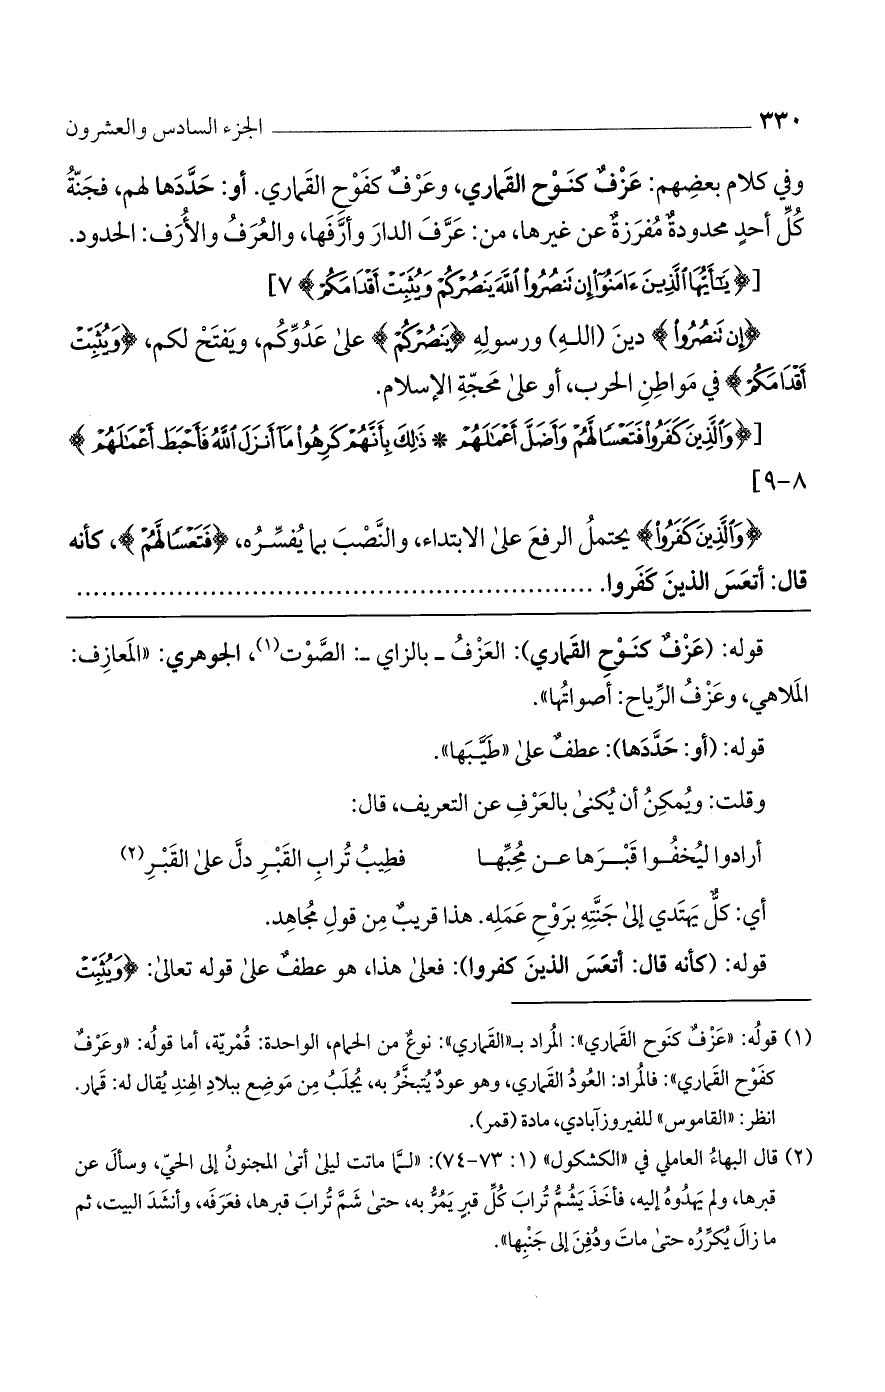 ٣٣٠ الجزء السادس والعشرون
وفي كلام بعضِهم: عَزْفٌ كنَـوْحِ القَماري، وعَرْفٌ كفَوْحِ القَماري. أو: حَدَّدَها لهم، فجَنّةُ
كُلِّ أحدٍ محدودةٌ مُفرَزةٌ عن غيرها، من: عَرَّفَ الدارَ وأرَّفَها، والعُرَفُ والأُرَف: الحدود.
[﴿يَٰٓأَيُّهَا ٱلَّذِينَ ءَامَنُوٓا۟ إِن تَنصُرُوا۟ ٱللَّهَ يَنصُرْكُمْ وَيُثَبِّتْ أَقْدَامَكُمْ﴾ ٧]
﴿إِن تَنصُرُوا۟﴾ دينَ (اللهِ) ورسولِهِ ﴿يَنصُرْكُمْ﴾ علىٰ عَدُوِّكُم، ويَفتَحْ لكم، ﴿وَيُثَبِّتْ
أَقْدَامَكُمْ﴾ في مَواطِنِ الحرب، أو علىٰ مَحَجّةِ الإسلام.
[﴿وَٱلَّذِينَ كَفَرُوا۟ فَتَعْسًا لَّهُمْ وَأَضَلَّ أَعْمَٰلَهُمْ * ذَٰلِكَ بِأَنَّهُمْ كَرِهُوا۟ مَآ أَنزَلَ ٱللَّهُ فَأَحْبَطَ أَعْمَٰلَهُمْ﴾
٨-٩]
﴿وَٱلَّذِينَ كَفَرُوا۟﴾ يحتملُ الرفعَ علىٰ الابتداء، والنَّصْبَ بما يُفسِّـرُه، ﴿فَتَعْسًا لَّهُمْ﴾، كأنه
قال: أتعَسَ الذينَ كَفَروا. ................................................................
قوله: (عَزْفٌ كنَـوْحِ القَماري): العَزْفُ ـ بالزاي ـ: الصَّوْت(١)، الجوهري: «المَعازِف:
المَلاهي، وعَزْفُ الرِّياح: أصواتُها».
قوله: (أو: حَدَّدَها): عطفٌ علىٰ «طَيَّبَها».
وقلت: ويُمكِنُ أن يُكنىٰ بالعَرْفِ عن التعريف، قال:
أرادوا ليُخفُـوا قَبْـرَها عـن مُحِبِّهـا فطِيبُ تُرابِ القَبْـرِ دلَّ علىٰ القَبْـرِ(٢)
أي: كلٌّ يَهتَدي إلىٰ جَنَّتِهِ برَوْحِ عَمَلِه. هذا قريبٌ مِن قولِ مُجاهِد.
قوله: (كأنه قال: أتعَسَ الذينَ كفروا): فعلىٰ هذا، هو عطفٌ علىٰ قوله تعالىٰ: ﴿وَيُثَبِّتْ
(١) قولُه: «عَزْفٌ كنَوحِ القَماري»: المُراد بـ«القَماري»: نوعٌ من الحمام، الواحدة: قُمْريّة، أما قولُه: «وعَرْفٌ
كفَوْحِ القَماري»: فالمُراد: العُودُ القَماري، وهو عودٌ يُتبخَّرُ به، يُجلَبُ مِن مَوضِعٍ ببلادِ الهندِ يُقال له: قَمار.
انظر: «القاموس» للفيروزآبادي، مادة (قمر).
(٢) قال البهاءُ العاملي في «الكشكول» (١: ٧٣-٧٤): «لـمَّا ماتت ليلىٰ أتىٰ المجنونُ إلى الحيّ، وسألَ عن
قبرِها، ولم يَهدُوهُ إليه، فأخَذَ يَشُمُّ تُرابَ كُلِّ قبرٍ يَمُرُّ به، حتىٰ شَمَّ تُرابَ قبرها، فعَرَفَه، وأنشَدَ البيت، ثم
ما زالَ يُكرِّرُه حتىٰ ماتَ ودُفِنَ إلى جَنْبِها».